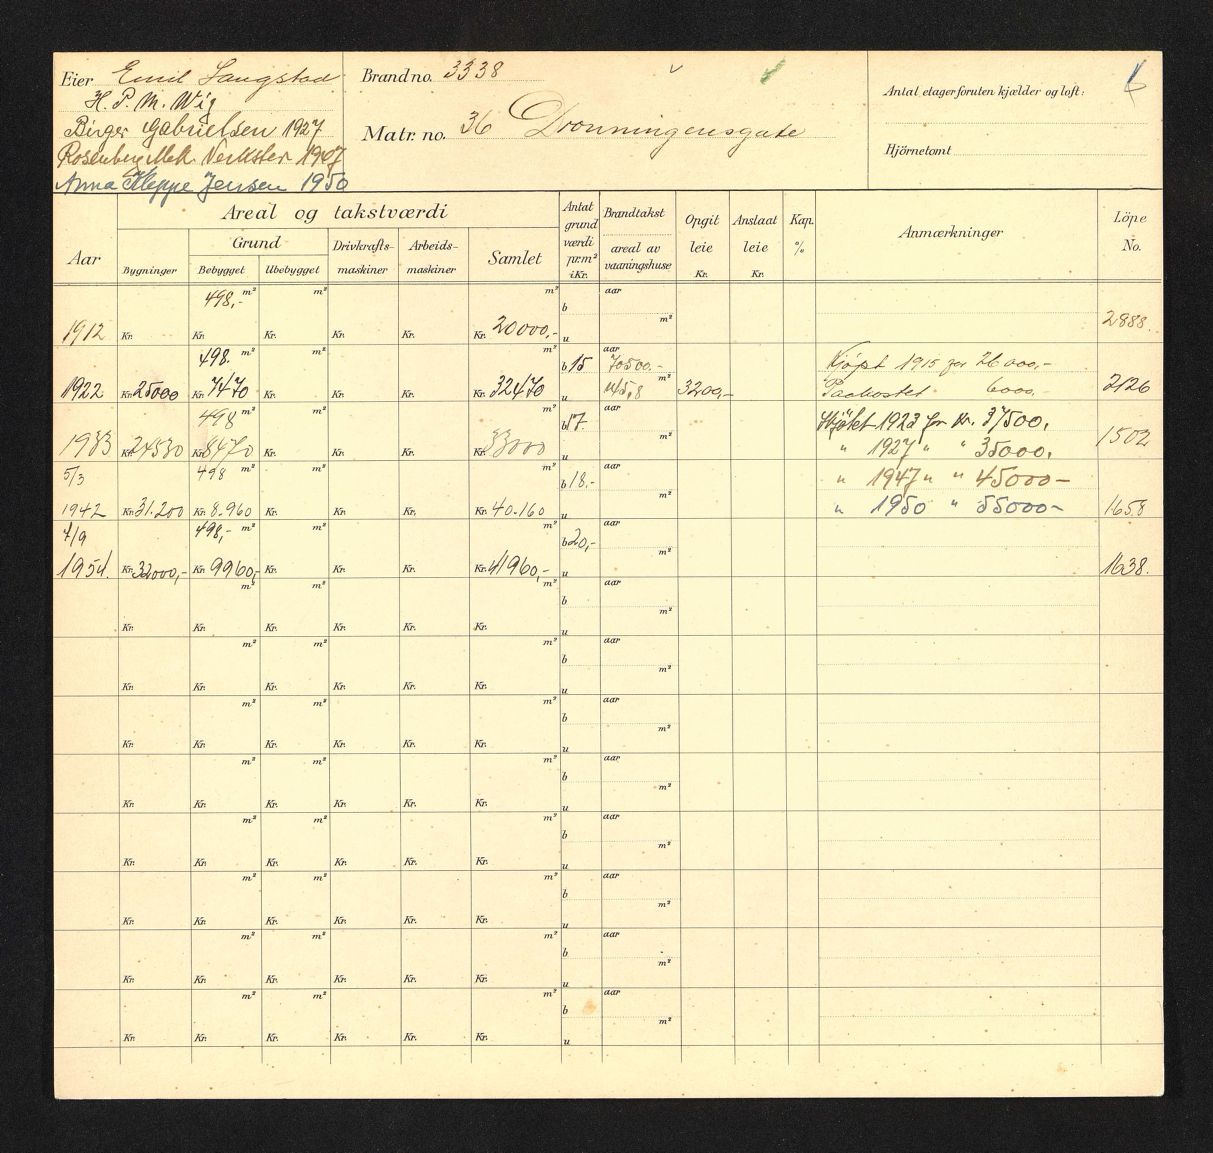 Eier Emil Langstad
H. P. M. Wig
Birger Gabrielsen 1927
Rosenberg Mek. Verksted 1947
Anna Kleppe Jensen 1950
Brand no. 3338
Matr. no. 36 Dronningensgate
Antal etager foruten kjælder og loft:
Hjörnetomt
Aar
Areal og takstværdi
Bygninger
Grund
Bebygget
Ubebygget
Drivkrafts-
maskiner
Arbeids-
maskiner
Samlet
Antat
grund
værdi
pr. m²
i Kr.
Brandtakst
areal av
vaaningshuse
Opgit
leie
Kr.
Anslaat
leie
Kr.
Kap.
%
Anmærkninger
Löpe
No.
498,- m² m² m² aar
b
m²
1912 Kr. Kr. Kr. Kr. Kr. Kr. 20000,- u 2888.
498. m² m² m² b 15 aar 70500.- Kjöpt 1915 for 26000,-
1922 Kr. 25000 Kr. 7470 Kr. Kr. Kr. Kr. 32470 u 145,8 m² 3200,- Paakostet 6000.- 2126
498 m² m² m² b 17. aar Skjötet 1923 for kr. 37500.
1933 Kr. 24530 Kr. 8470 Kr. Kr. Kr. Kr. 33000 u m² " 1927 " " 35000. 1502
5/3 498 m² m² m² b 18.- aar " 1947 " " 45000-
1942 Kr. 31.200 Kr. 8.960 Kr. Kr. Kr. Kr. 40.160 u m² " 1950 " 55000- 1658
7/9 498,- m² m² m² b 20,- aar
1954. Kr. 32000,- Kr. 9960,- Kr. Kr. Kr. Kr. 41960,- u m² 1638.
m² m² m² b aar
Kr. Kr. Kr. Kr. Kr. Kr. u m²
m² m² m² b aar
Kr. Kr. Kr. Kr. Kr. Kr. u m²
m² m² m² b aar
Kr. Kr. Kr. Kr. Kr. Kr. u m²
m² m² m² b aar
Kr. Kr. Kr. Kr. Kr. Kr. u m²
m² m² m² b aar
Kr. Kr. Kr. Kr. Kr. Kr. u m²
m² m² m² b aar
Kr. Kr. Kr. Kr. Kr. Kr. u m²
m² m² m² b aar
Kr. Kr. Kr. Kr. Kr. Kr. u m²
m² m² m² b aar
Kr. Kr. Kr. Kr. Kr. Kr. u m²